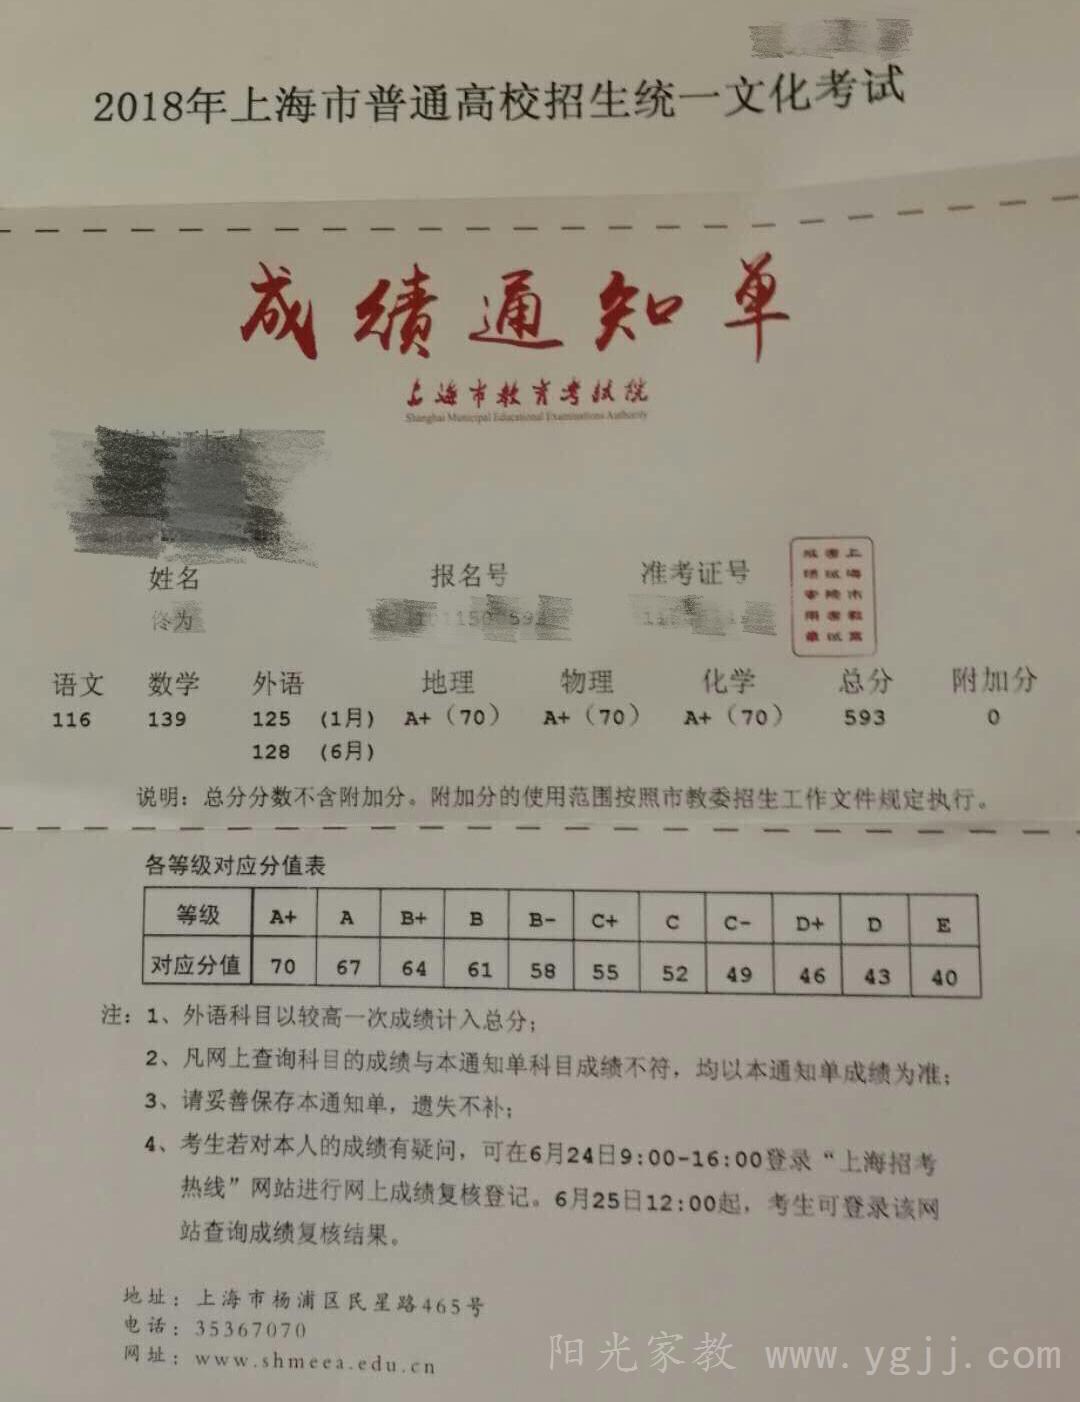 2018年上海市普通高校招生统一文化考试
成绩通知单
上海市教育考试院
Shanghai Municipal Educational Examinations Authority
姓名 报名号 准考证号
上海市教育考试院成绩专用章
语文 数学 外语 地理 物理 化学 总分 附加分
116 139 125 (1月) A+(70) A+(70) A+(70) 593 0
128 (6月)
说明：总分分数不含附加分。附加分的使用范围按照市教委招生工作文件规定执行。
各等级对应分值表
等级 A+ A B+ B B- C+ C C- D+ D E
对应分值 70 67 64 61 58 55 52 49 46 43 40
注：1、外语科目以较高一次成绩计入总分；
2、凡网上查询科目的成绩与本通知单科目成绩不符，均以本通知单成绩为准；
3、请妥善保存本通知单，遗失不补；
4、考生若对本人的成绩有疑问，可在6月24日9:00-16:00登录“上海招考
热线”网站进行网上成绩复核登记。6月25日12:00起，考生可登录该网
站查询成绩复核结果。
地址：上海市杨浦区民星路465号
电话：35367070
网址：www.shmeea.edu.cn
阳光家教 www.ygjj.com